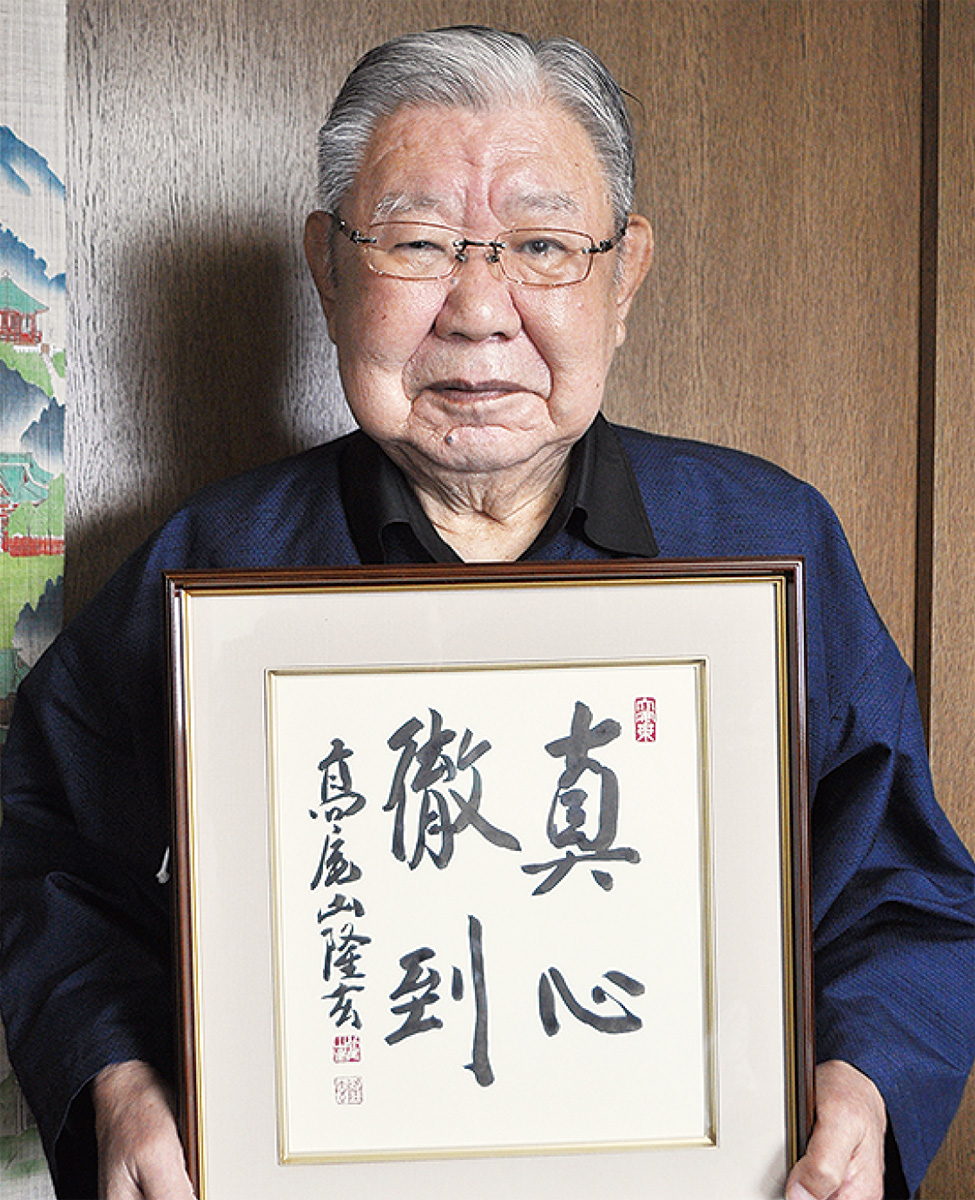 真心
徹到
高尾山隆玄